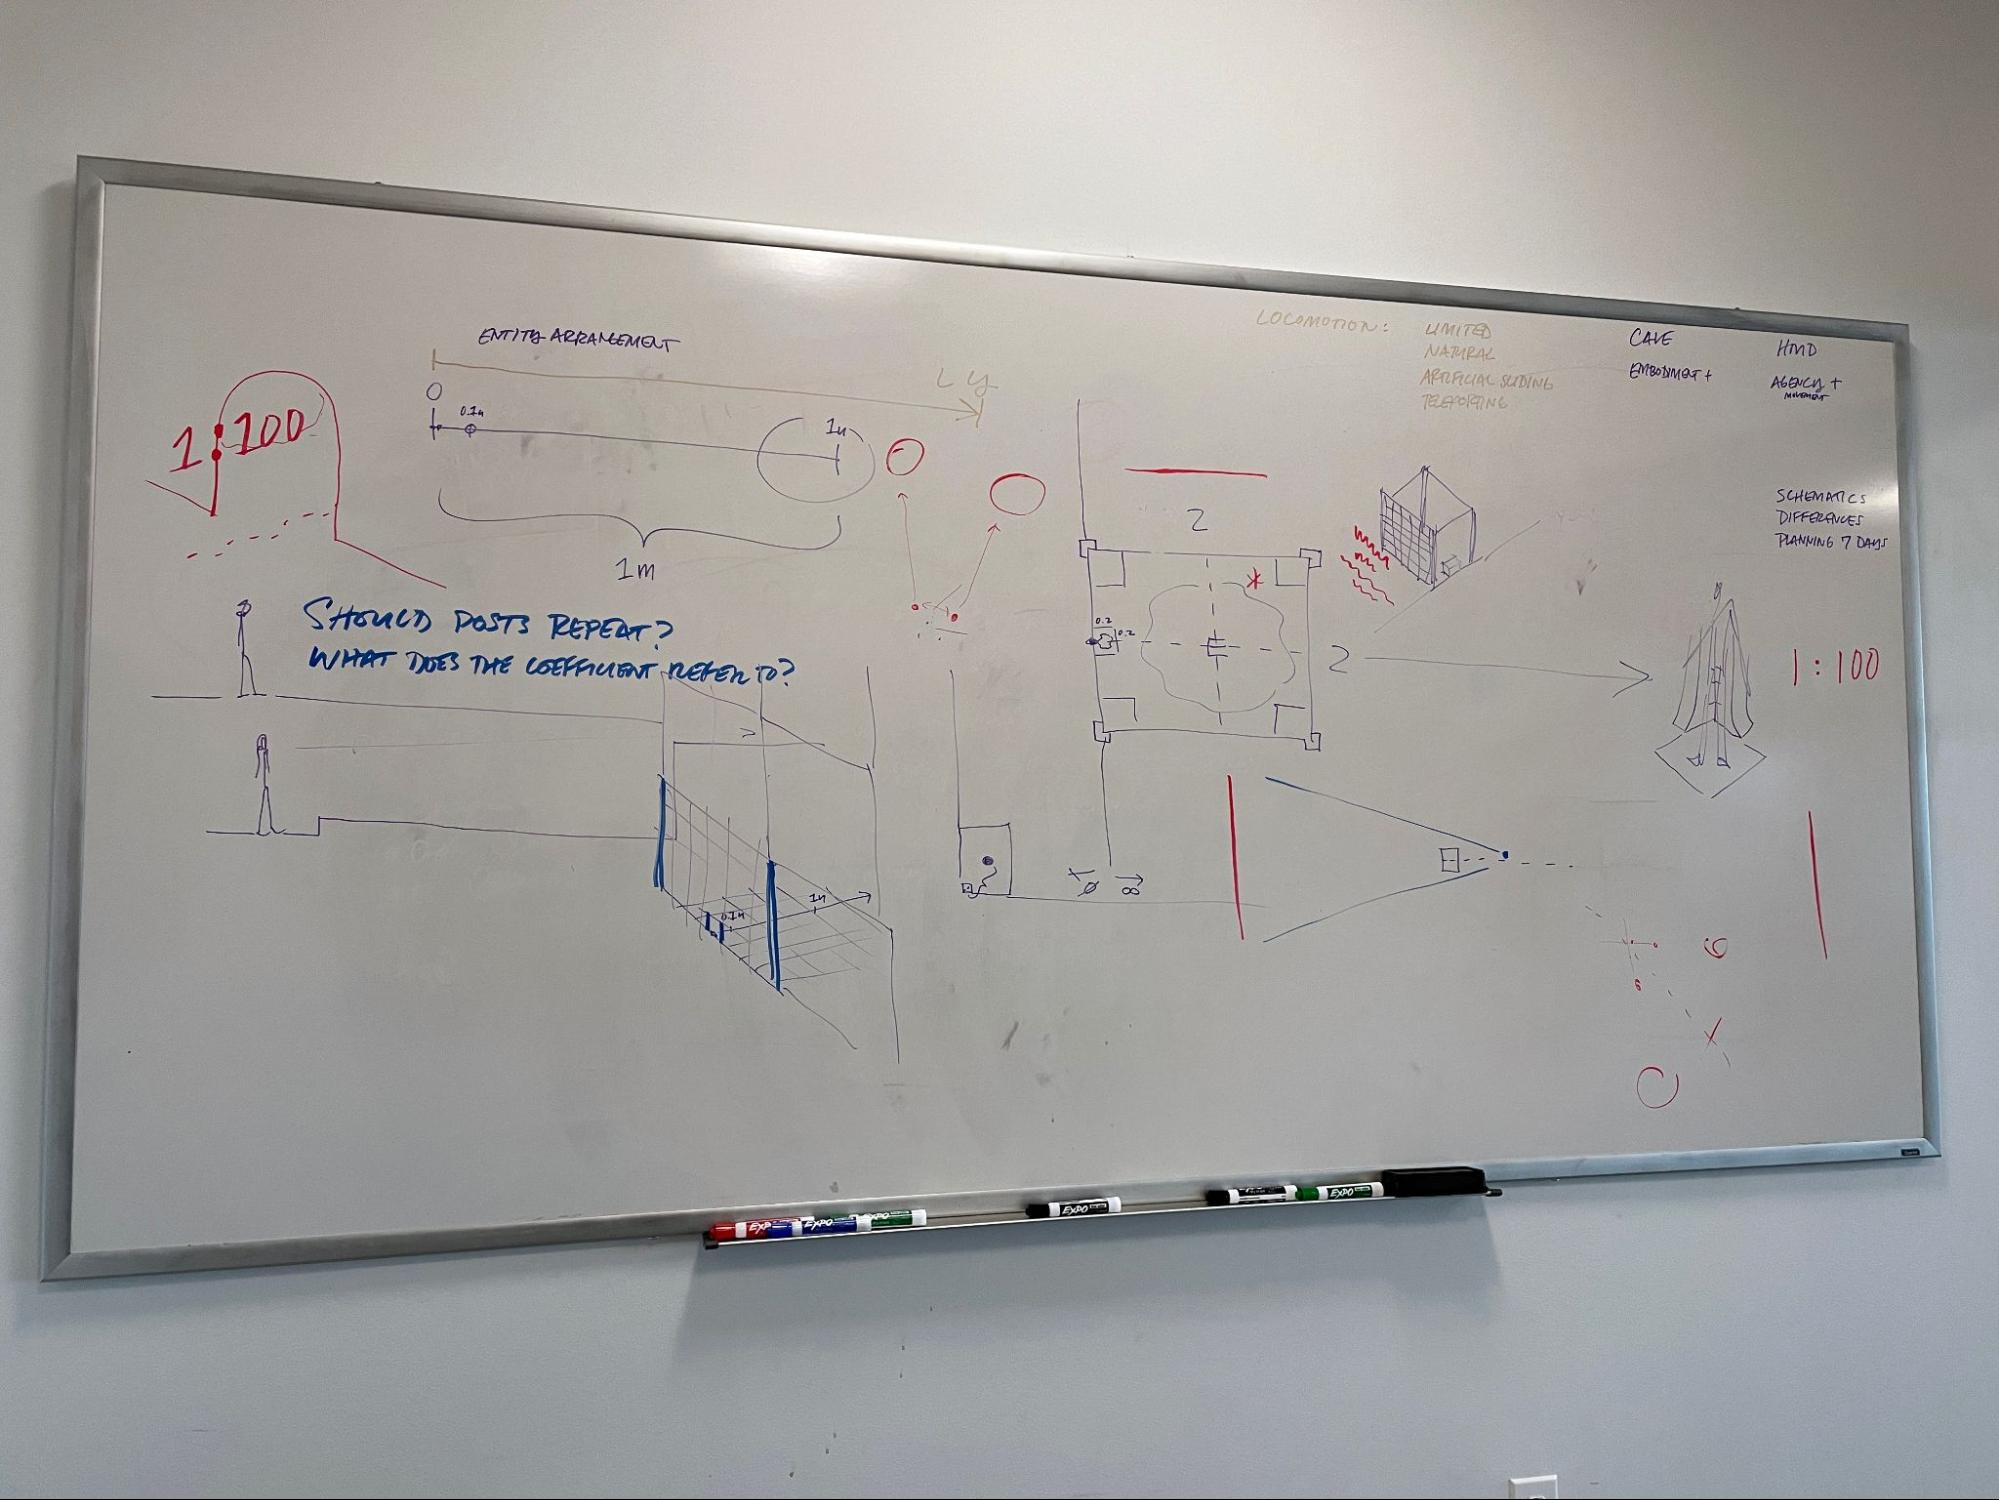 ENTITY ARRANGEMENT
LY
0
0.1u
1u
1m
1:100
SHOULD POSTS REPEAT?
WHAT DOES THE COEFFICIENT REFER TO?
0.1u
1u
LOCOMOTION:
LIMITED
NATURAL
ARTIFICIAL SLIDING
TELEPORTING
CAVE
EMBODIMENT +
HMD
AGENCY +
MOVEMENT
SCHEMATICS
DIFFERENCES
PLANNING 7 DAYS
2
0.2
0.2
2
1:100
EXPO
EXPO
EXPO
EXPO